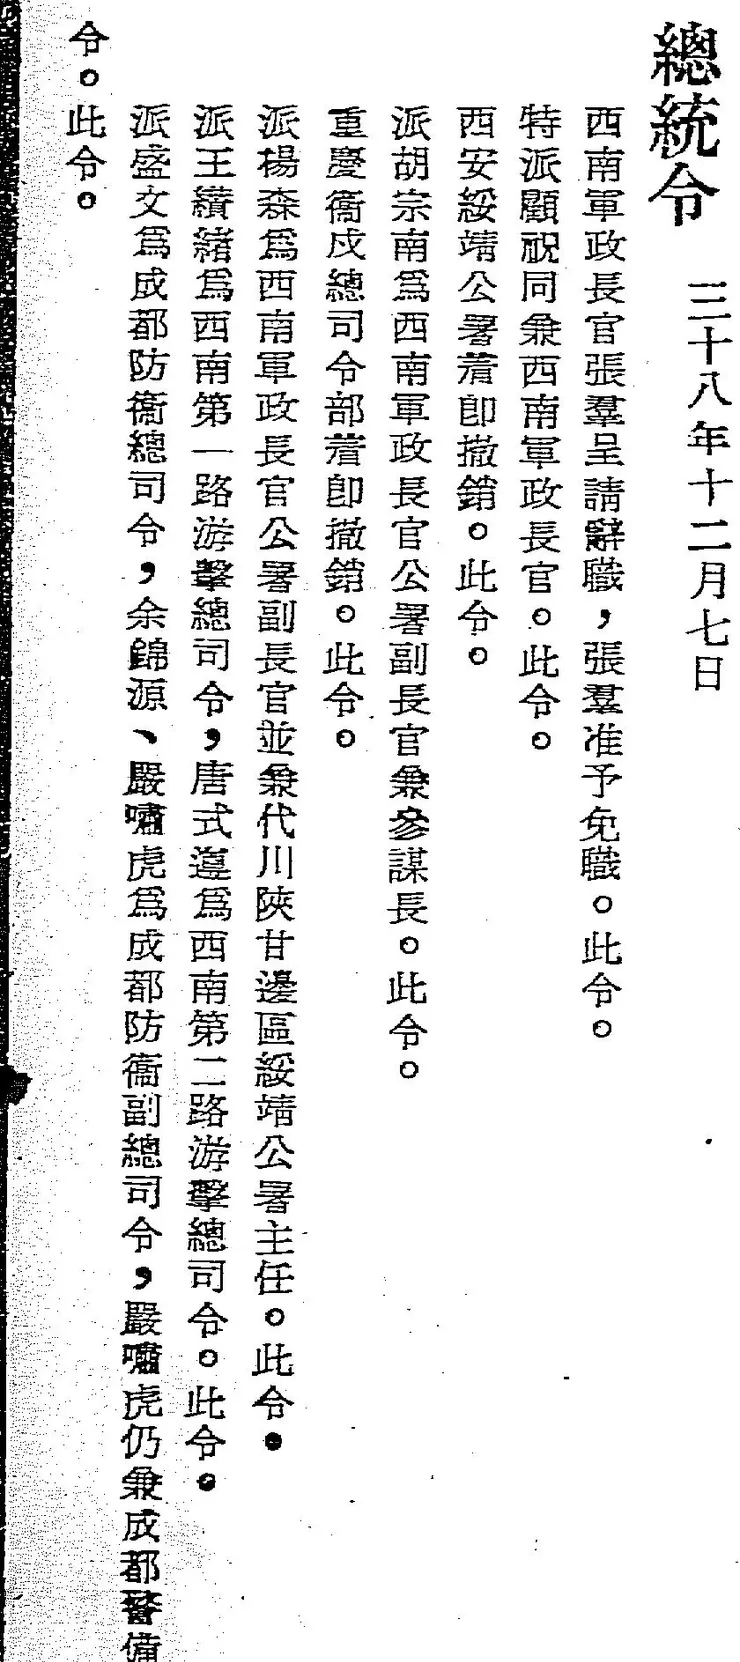 總統令
三十八年十二月七日
西南軍政長官張羣呈請辭職，張羣准予免職。此令。
特派顧祝同兼西南軍政長官。此令。
西安綏靖公署着卽撤銷。此令。
派胡宗南爲西南軍政長官公署副長官兼參謀長。此令。
重慶衞戍總司令部着卽撤銷。此令。
派楊森爲西南軍政長官公署副長官並兼代川陝甘邊區綏靖公署主任。此令。
派王纘緒爲西南第一路游擊總司令，唐式遵爲西南第二路游擊總司令。此令。
派盛文爲成都防衞總司令，余錦源、嚴嘯虎爲成都防衞副總司令，嚴嘯虎仍兼成都警備
令。此令。